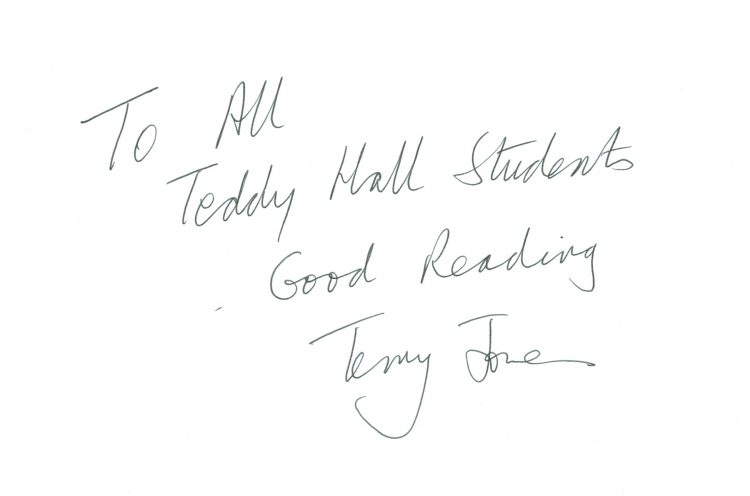 To All
Teddy Hall Students
Good Reading
Terry Jones